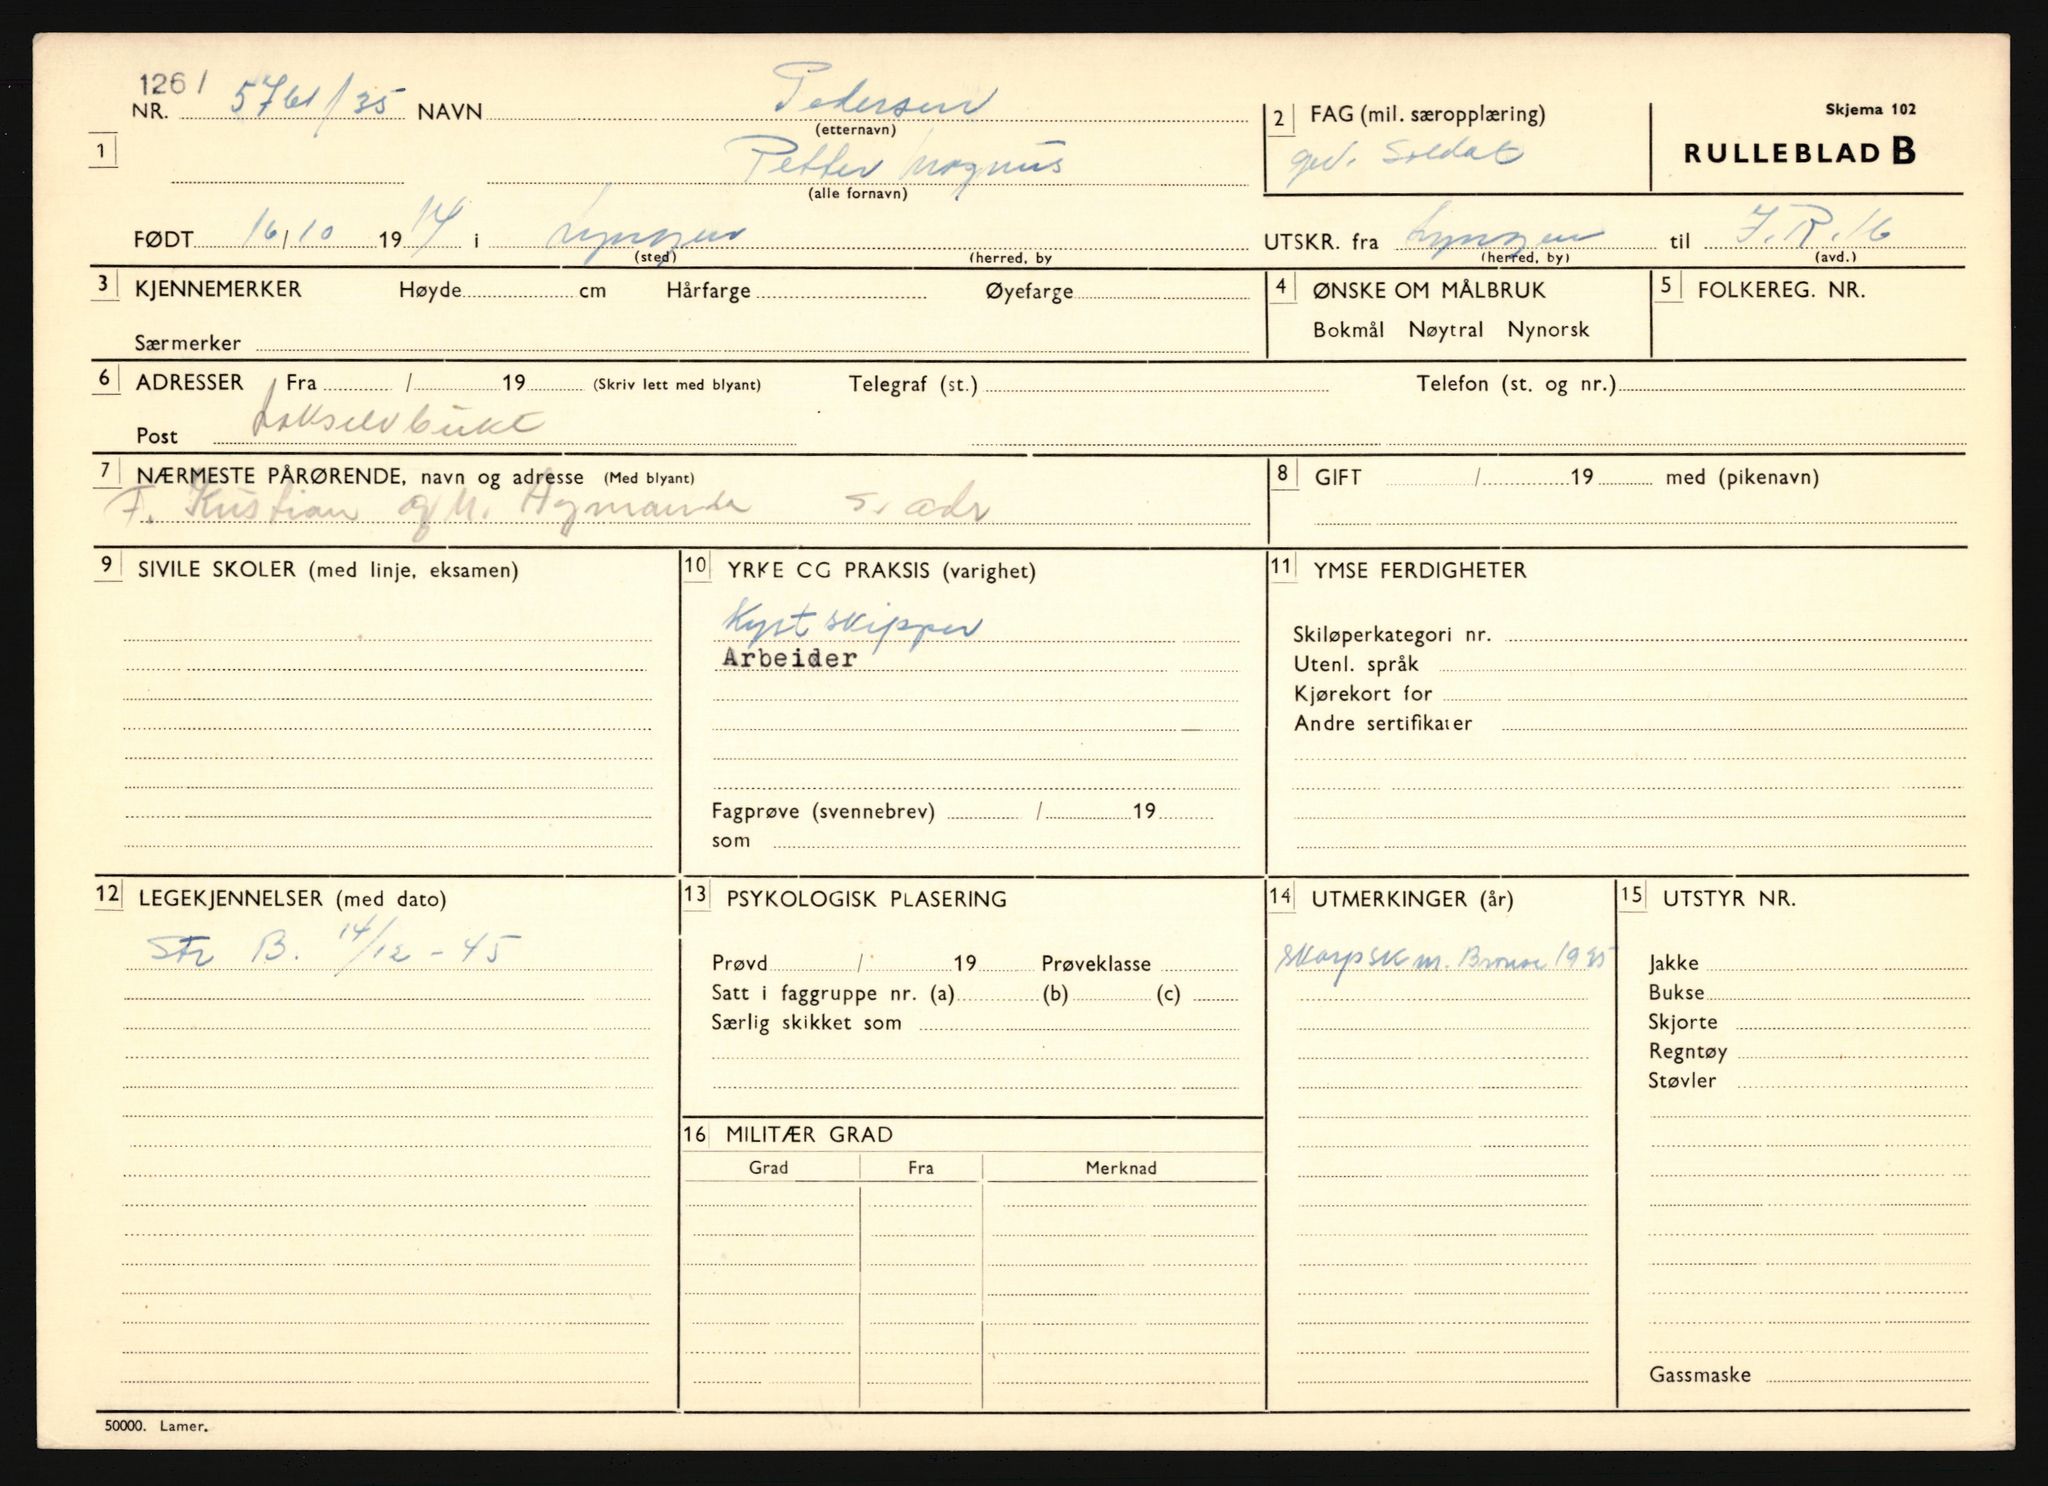 126 /
NR. 5761/35 NAVN Pedersen
(etternavn)
2 FAG (mil. særopplæring)
Skjema 102
RULLEBLAD B
1
Petter Magnus
(alle fornavn)
gev. Soldat
FØDT 16/10 1914 i Lyngen
(sted) (herred, by
UTSKR. fra Lyngen til I.R.16
(herred, by) (avd.)
3 KJENNEMERKER Høyde cm Hårfarge Øyefarge
Særmerker
4 ØNSKE OM MÅLBRUK
Bokmål Nøytral Nynorsk
5 FOLKEREG. NR.
6 ADRESSER Fra / 19 (Skriv lett med blyant) Telegraf (st.) Telefon (st. og nr.)
Post Lakselvbukt
7 NÆRMESTE PÅRØRENDE, navn og adresse (Med blyant)
F. Kristian og M. s. adr
8 GIFT / 19 med (pikenavn)
9 SIVILE SKOLER (med linje, eksamen)
10 YRKE CG PRAKSIS (varighet)
Kystskipper
Arbeider
Fagprøve (svennebrev) / 19
som
11 YMSE FERDIGHETER
Skiløperkategori nr.
Utenl. språk
Kjørekort for
Andre sertifikater
12 LEGEKJENNELSER (med dato)
Str B. 14/12 - 45
13 PSYKOLOGISK PLASERING
Prøvd / 19 Prøveklasse
Satt i faggruppe nr. (a) (b) (c)
Særlig skikket som
14 UTMERKINGER (år)
Skarpsk m. Bronse 1935
15 UTSTYR NR.
Jakke
Bukse
Skjorte
Regntøy
Støvler
Gassmaske
16 MILITÆR GRAD
Grad Fra Merknad
50000. Lamer.